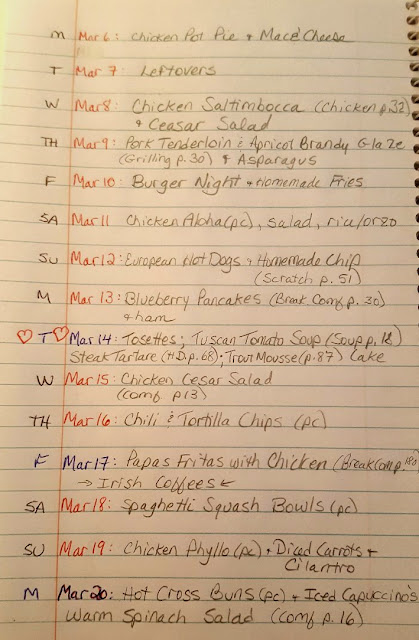 M Mar 6: Chicken Pot Pie & Mac & Cheese
T Mar 7: Leftovers
W Mar 8: Chicken Saltimbocca (Chicken p.32)
& Ceasar Salad
TH Mar 9: Pork Tenderloin & Apricot Brandy Glaze
(Grilling p.30) & Asparagus
F Mar 10: Burger Night & Homemade Fries
SA Mar 11 Chicken Aloha (pc), salad, rice/orzo
SU Mar 12: European Hot Dogs & Homemade Chip
(Scratch p.51)
M Mar 13: Blueberry Pancakes (Break Comf p. 30)
& ham
♡ T ♡ Mar 14: Tosettes; Tuscan Tomato Soup (Soup p. 18)
Steak Tartare (H.D. p.68); Trout Mousse (p.87) Cake
W Mar 15: Chicken Cesar Salad
(comf p13)
TH Mar 16: Chili & Tortilla Chips (pc)
F Mar 17: Papas Fritas with Chicken (Break Com p. 180)
→ Irish Coffees ←
SA Mar 18: Spaghetti Squash Bowls (pc)
SU Mar 19: Chicken Phyllo (pc) + Diced Carrots +
Cilantro
M Mar 20: Hot Cross Buns (pc) + Iced Capuccino's
Warm Spinach Salad (comf p. 16)